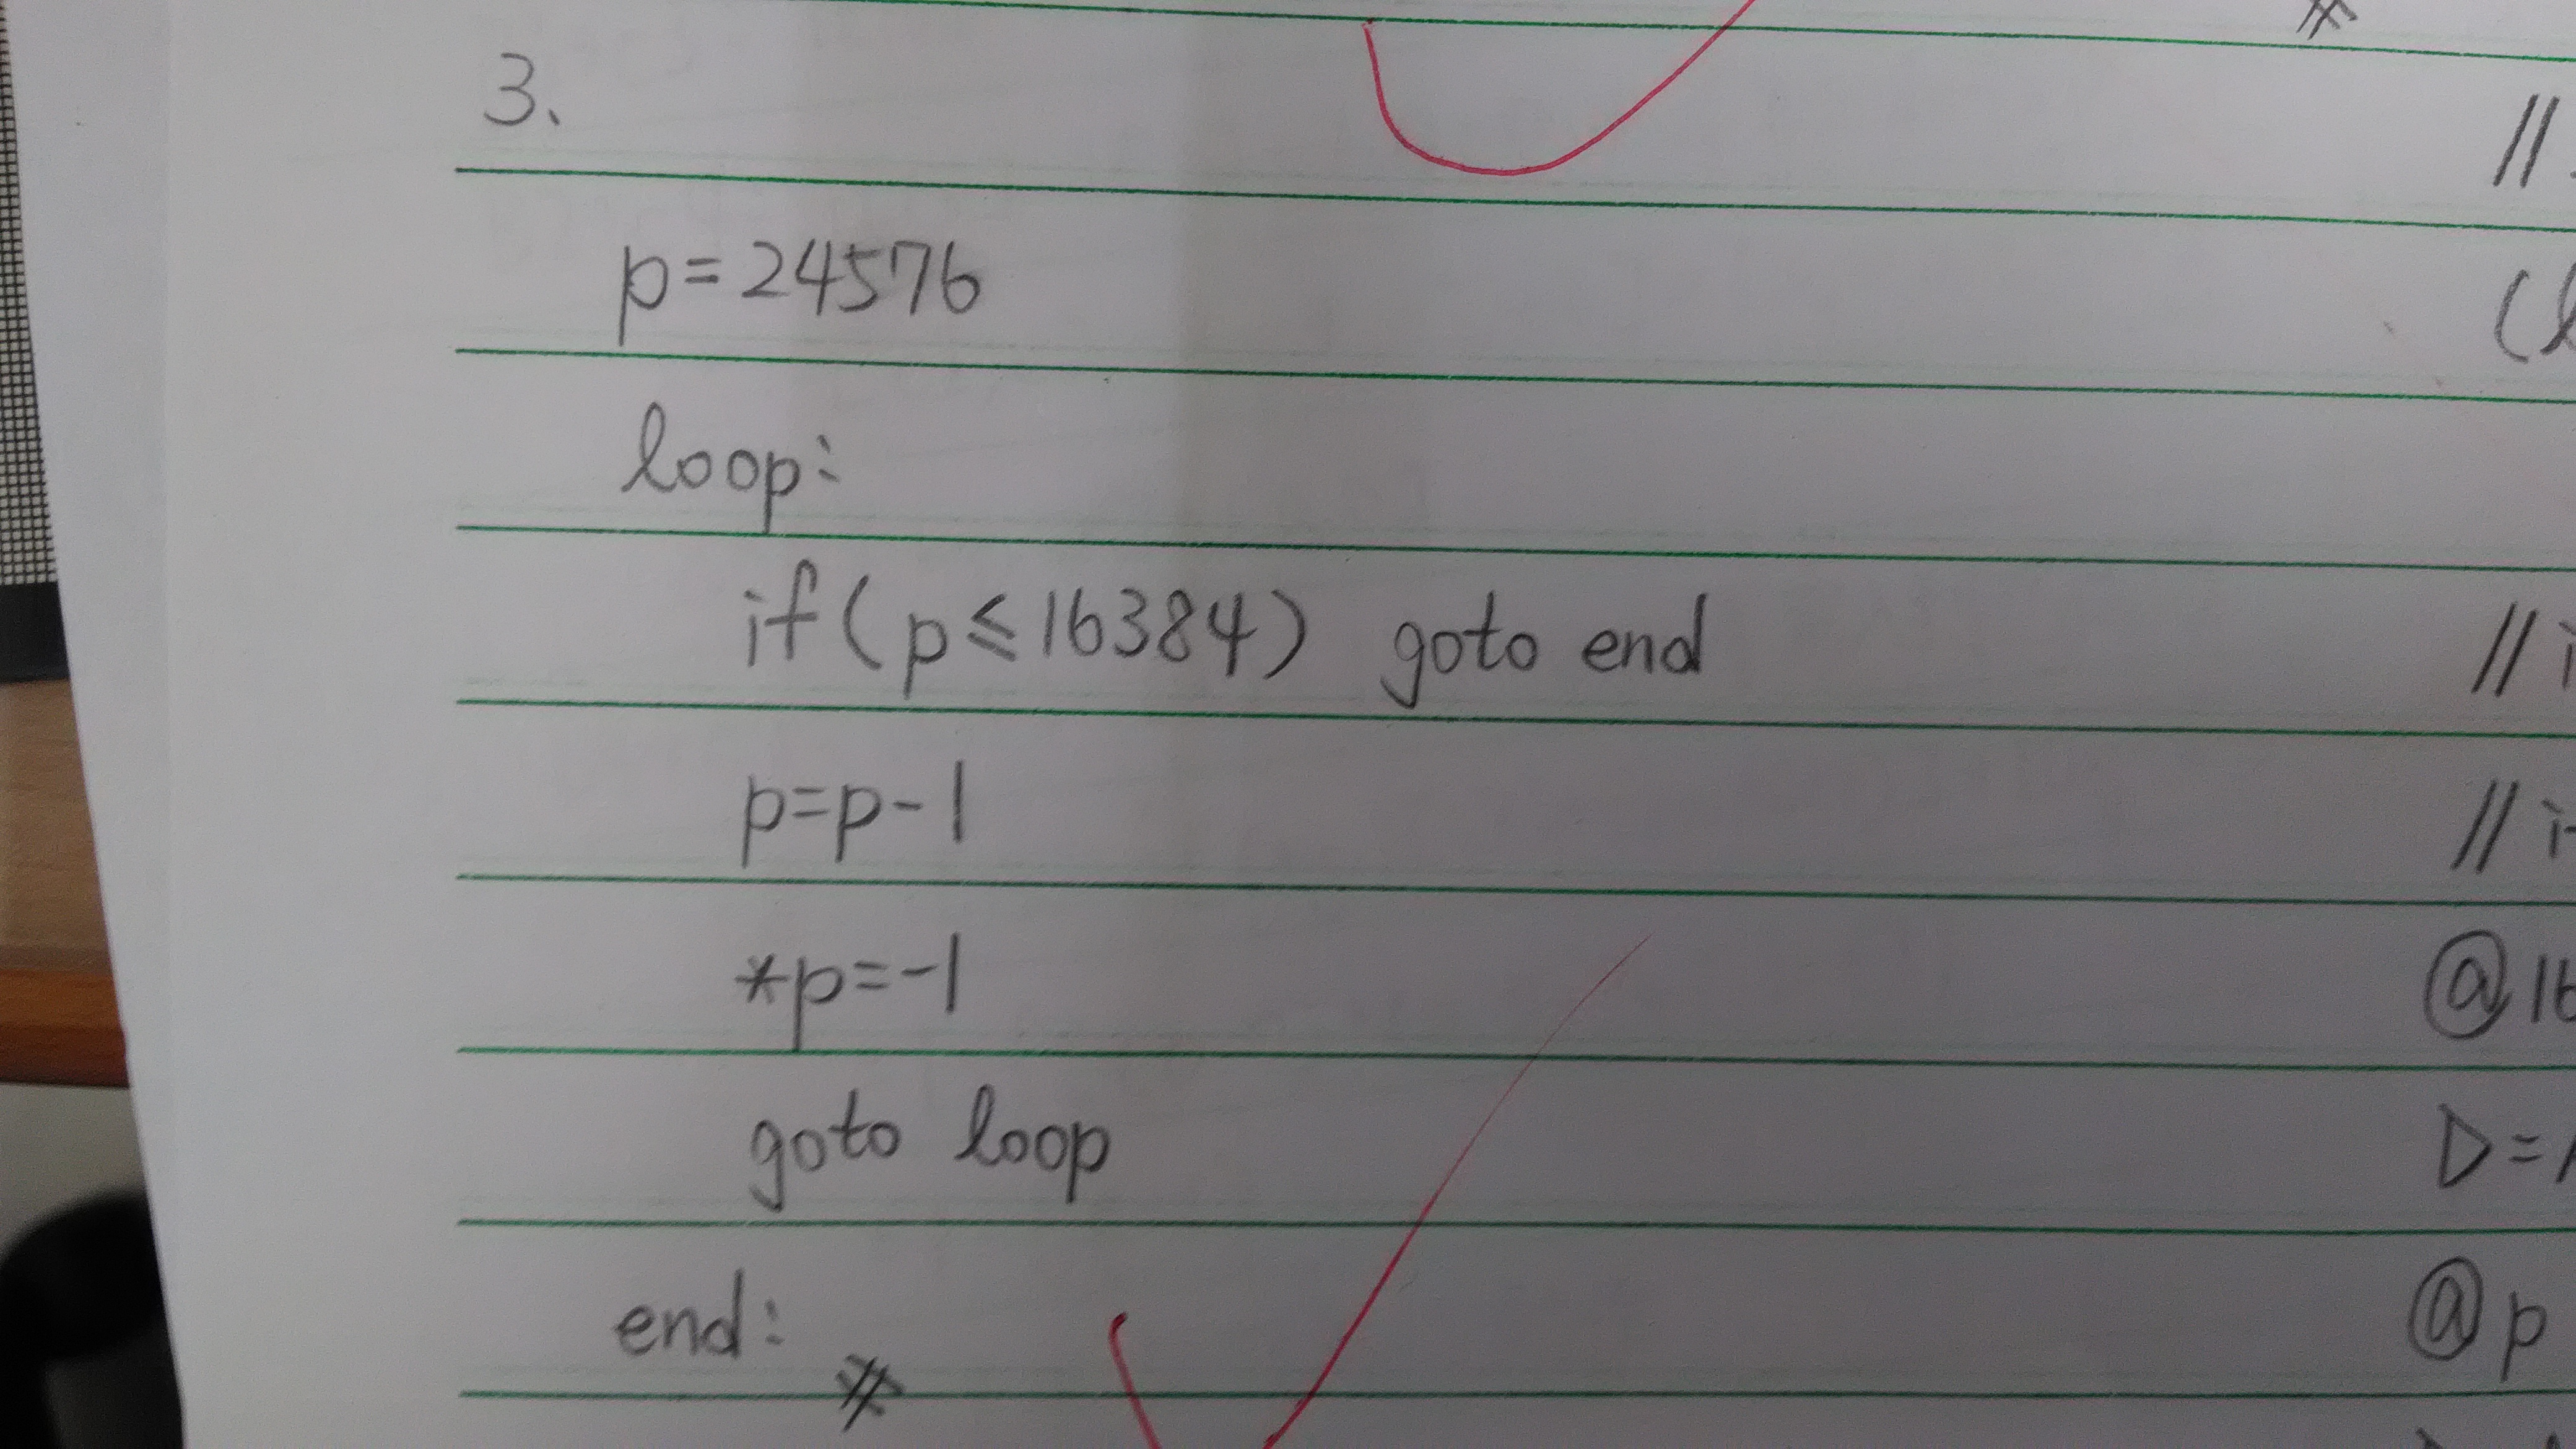 3、
p=24576
loop:
if(p≤16384) goto end
p=p-1
*p=-1
goto loop
end:
//
(l
// i
// i
@16
D=
@p